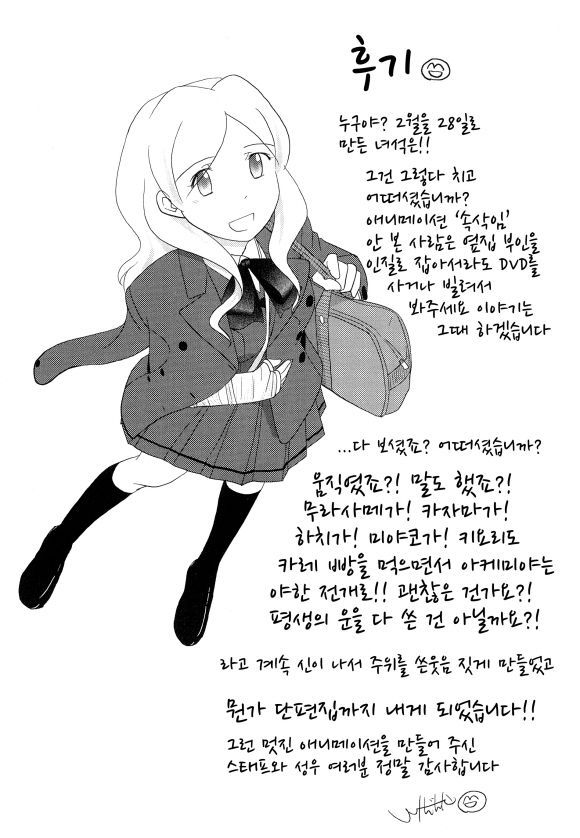 후기
누구야? 2월을 28일로
만든 녀석은!!
그건 그렇다 치고
어떠셨습니까?
애니메이션 '속삭임'
안 본 사람은 옆집 부인을
인질로 잡아서라도 DVD를
사거나 빌려서
봐주세요 이야기는
그때 하겠습니다
...다 보셨죠? 어떠셨습니까?
움직였죠?! 말도 했죠?!
무라사메가! 카자마가!
하치가! 미야코가! 키요리도
카레 빵을 먹으면서 아케미야는
야한 전개로!! 괜찮은 건가요?!
평생의 운을 다 쓴 건 아닐까요?!
라고 계속 신이 나서 주위를 쓴웃음 짓게 만들었고
뭔가 단편집까지 내게 되었습니다!!
그런 멋진 애니메이션을 만들어 주신
스태프와 성우 여러분 정말 감사합니다